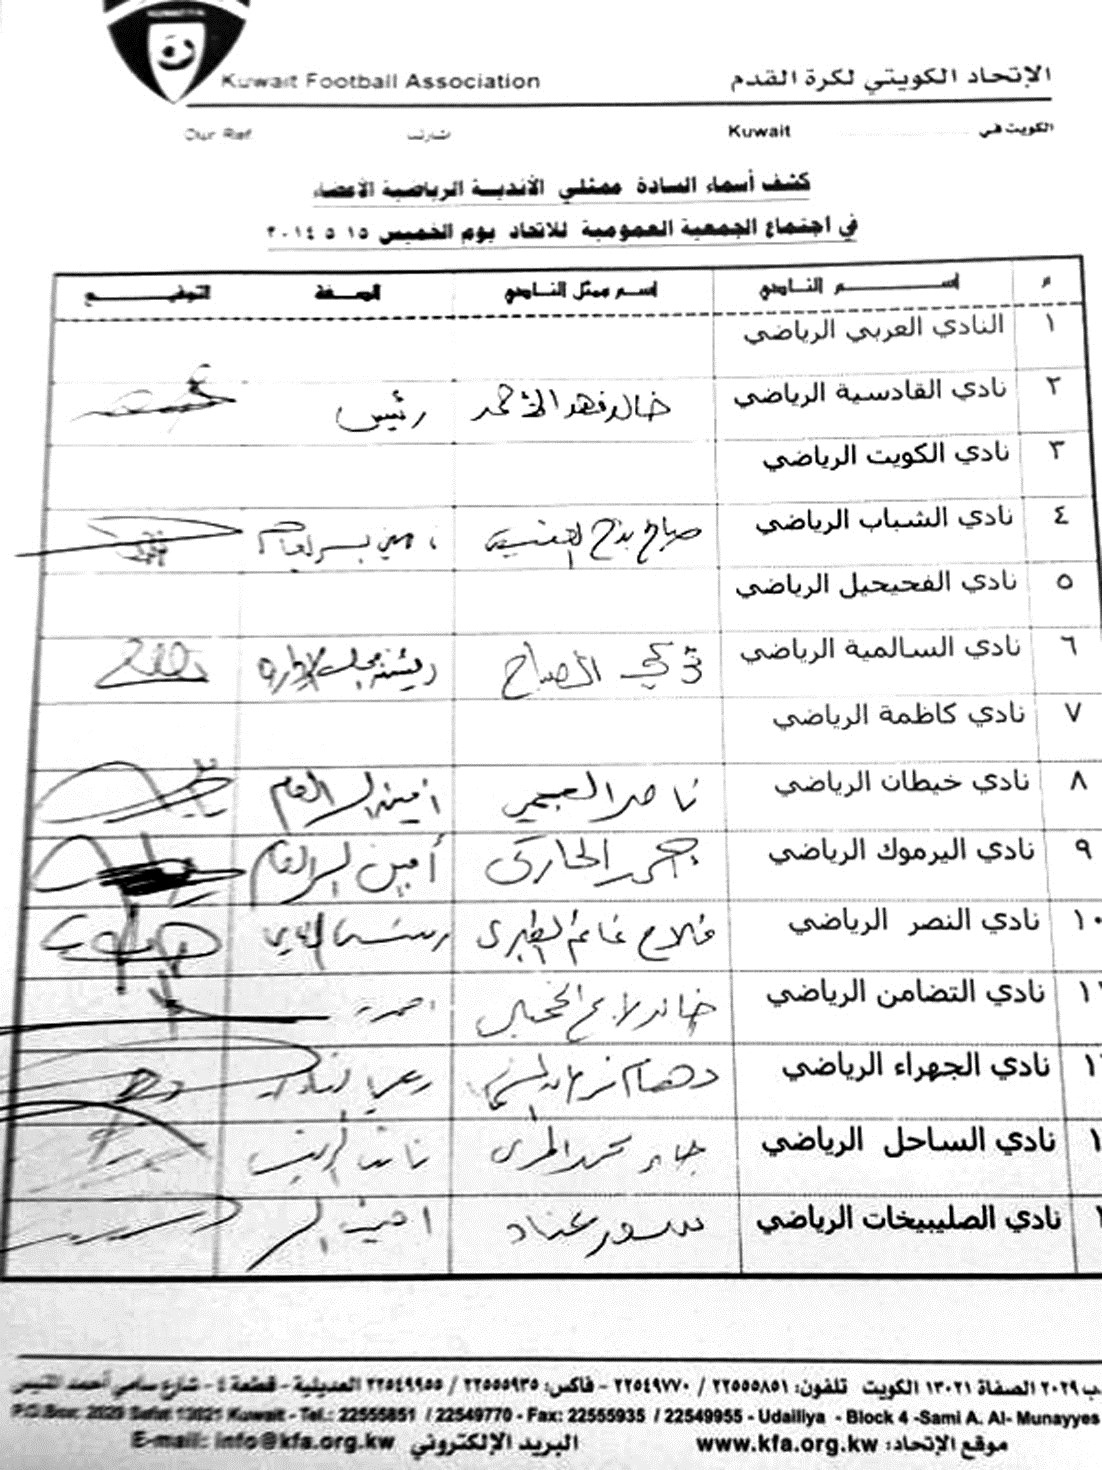 Kuwait Football Association
الإتحاد الكويتي لكرة القدم
Our Ref. إشارتنا Kuwait الكويت في
كشف أسماء السادة ممثلي الأندية الرياضية الأعضاء
في اجتماع الجمعية العمومية للاتحاد يوم الخميس ١٥ ٥ ٢٠١٤
م اســـم النــادي اسم ممثل النــادي الصفة التوقيـــع
١ النادي العربي الرياضي
٢ نادي القادسية الرياضي خالد فهد الأحمد رئيس
٣ نادي الكويت الرياضي
٤ نادي الشباب الرياضي صباح
٥ نادي الفحيحيل الرياضي
٦ نادي السالمية الرياضي تركي الصباح رئيس مجلس الإدارة
٧ نادي كاظمة الرياضي
٨ نادي خيطان الرياضي ناصر العجمي أمين السر العام
٩ نادي اليرموك الرياضي أمين السر العام
١٠ نادي النصر الرياضي فلاح غانم
١ نادي التضامن الرياضي خالد
١ نادي الجهراء الرياضي دهام
١ نادي الساحل الرياضي جابر محمد المري نائب الرئيس
١ نادي الصليبيخات الرياضي عناد أمين السر
ب ٢٠٢٩ الصفاة ١٣٠٢١ الكويت تلفون: ٢٢٥٥٥٨٥١ / ٢٢٥٤٩٧٧٠ - فاكس: ٢٢٥٥٥٩٣٥ / ٢٢٥٤٩٩٥٥ العديلية - قطعة ٤ - شارع سامي أحمد المنيس
P.O.Box: 2029 Safat 13021 Kuwait - Tel.: 22555851 / 22549770 - Fax: 22555935 / 22549955 - Udailiya - Block 4 -Sami A. Al- Munayyes
E-mail: info@kfa.org.kw البريد الإلكتروني www.kfa.org.kw موقع الإتحاد: